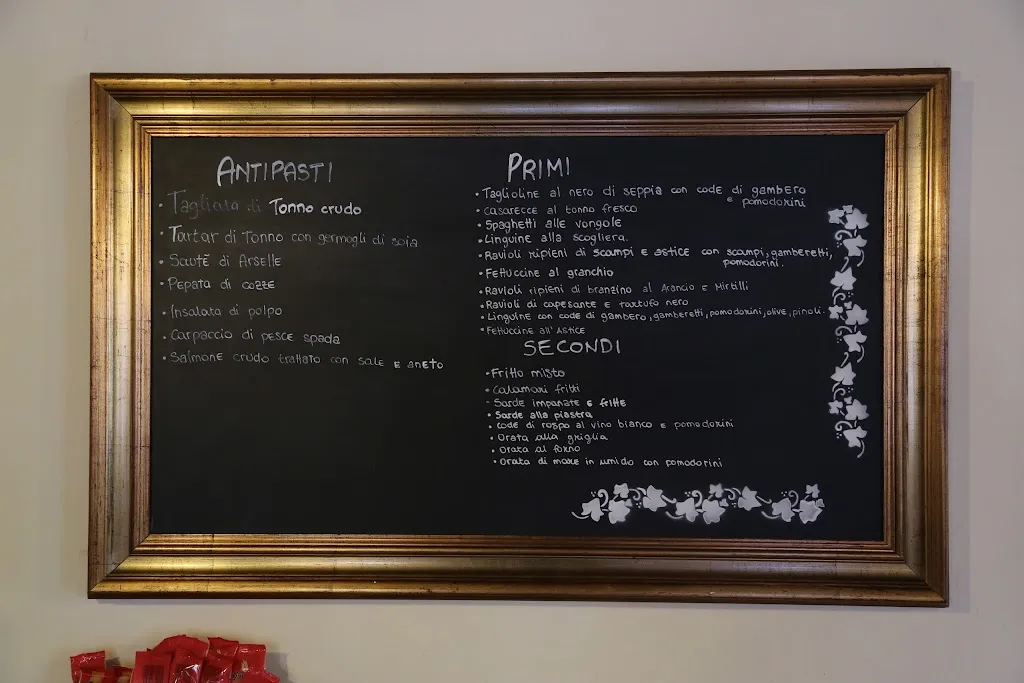 ANTIPASTI
• Tagliata di Tonno crudo
• Tartar di Tonno con germogli di soia
• Sautè di Arselle
• Pepata di cozze
• Insalata di polpo
• Carpaccio di pesce spada
• Salmone crudo trattato con sale e aneto
PRIMI
• Taglioline al nero di seppia con code di gambero
e pomodorini
• casarecce al tonno fresco
• Spaghetti alle vongole
• Linguine alla scogliera.
• Ravioli ripieni di scampi e astice con scampi, gamberetti,
pomodorini.
• Fettuccine al granchio
• Ravioli ripieni di branzino al Arancio e Mirtilli
• Ravioli di capesante e tartufo nero
• Linguine con code di gambero, gamberetti, pomodorini, olive, pinoli.
• Fettuccine all'Astice
SECONDI
• Fritto misto
• Calamari fritti
- Sarde impanate e fritte
• Sarde alla piastra
• code di rospo al vino bianco e pomodorini
• Orata alla griglia
• Orata al forno
• Orata di mare in umido con pomodorini